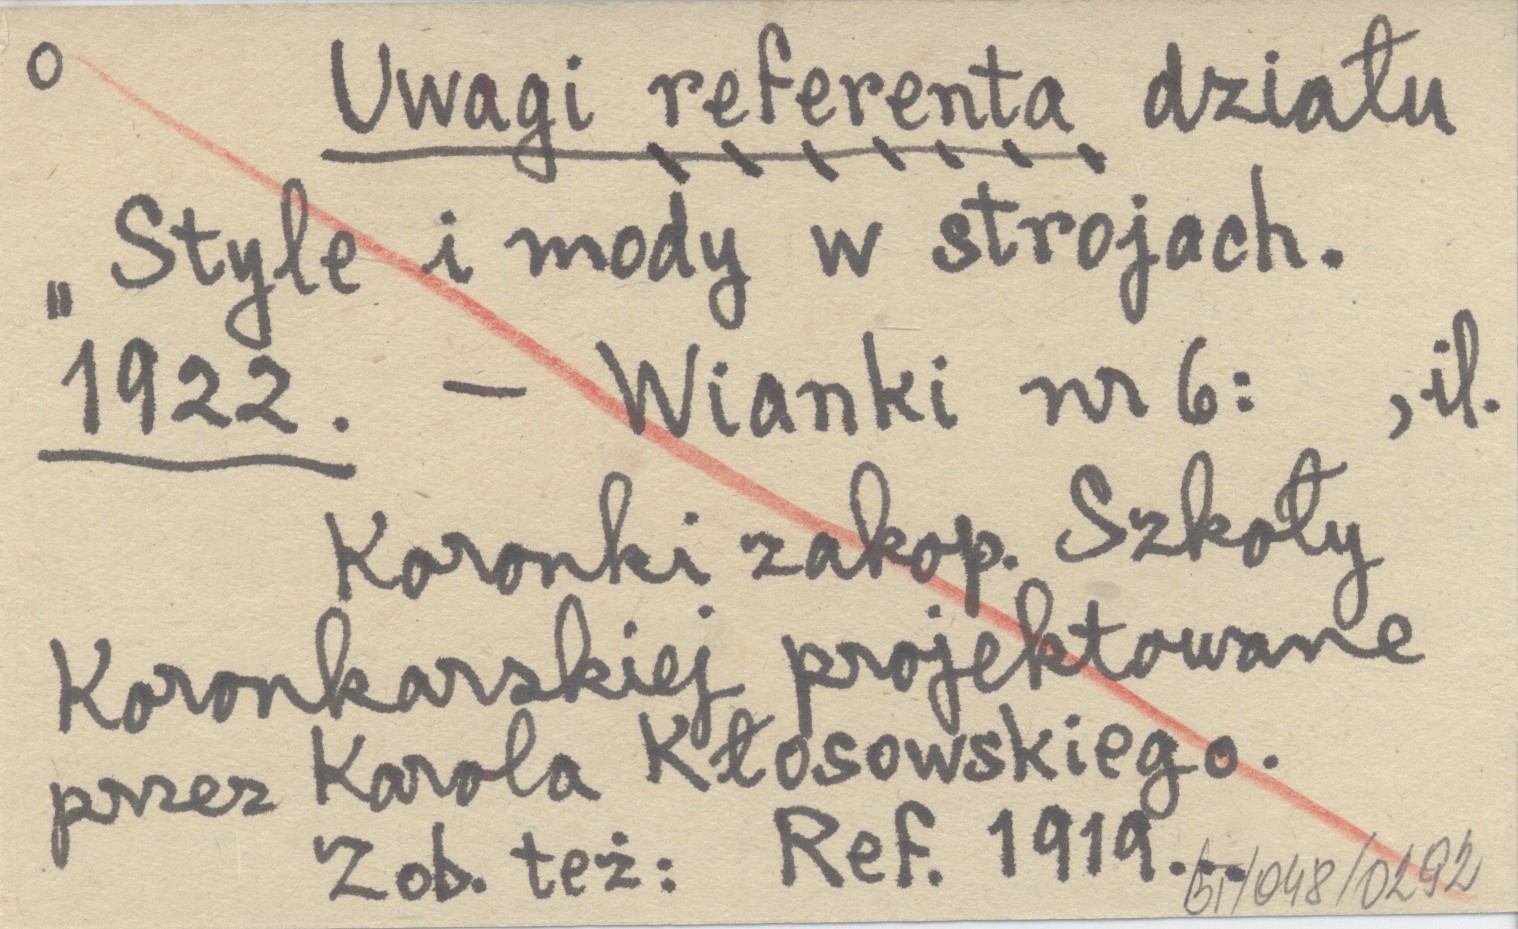 o Uwagi referenta działu
„Style i mody w strojach.
1922. — Wianki nr 6: , il.
Koronki zakop. Szkoły
Koronkarskiej projektowane
przez Karola Kłosowskiego.
Zob. też: Ref. 1919...
bl/048/0292